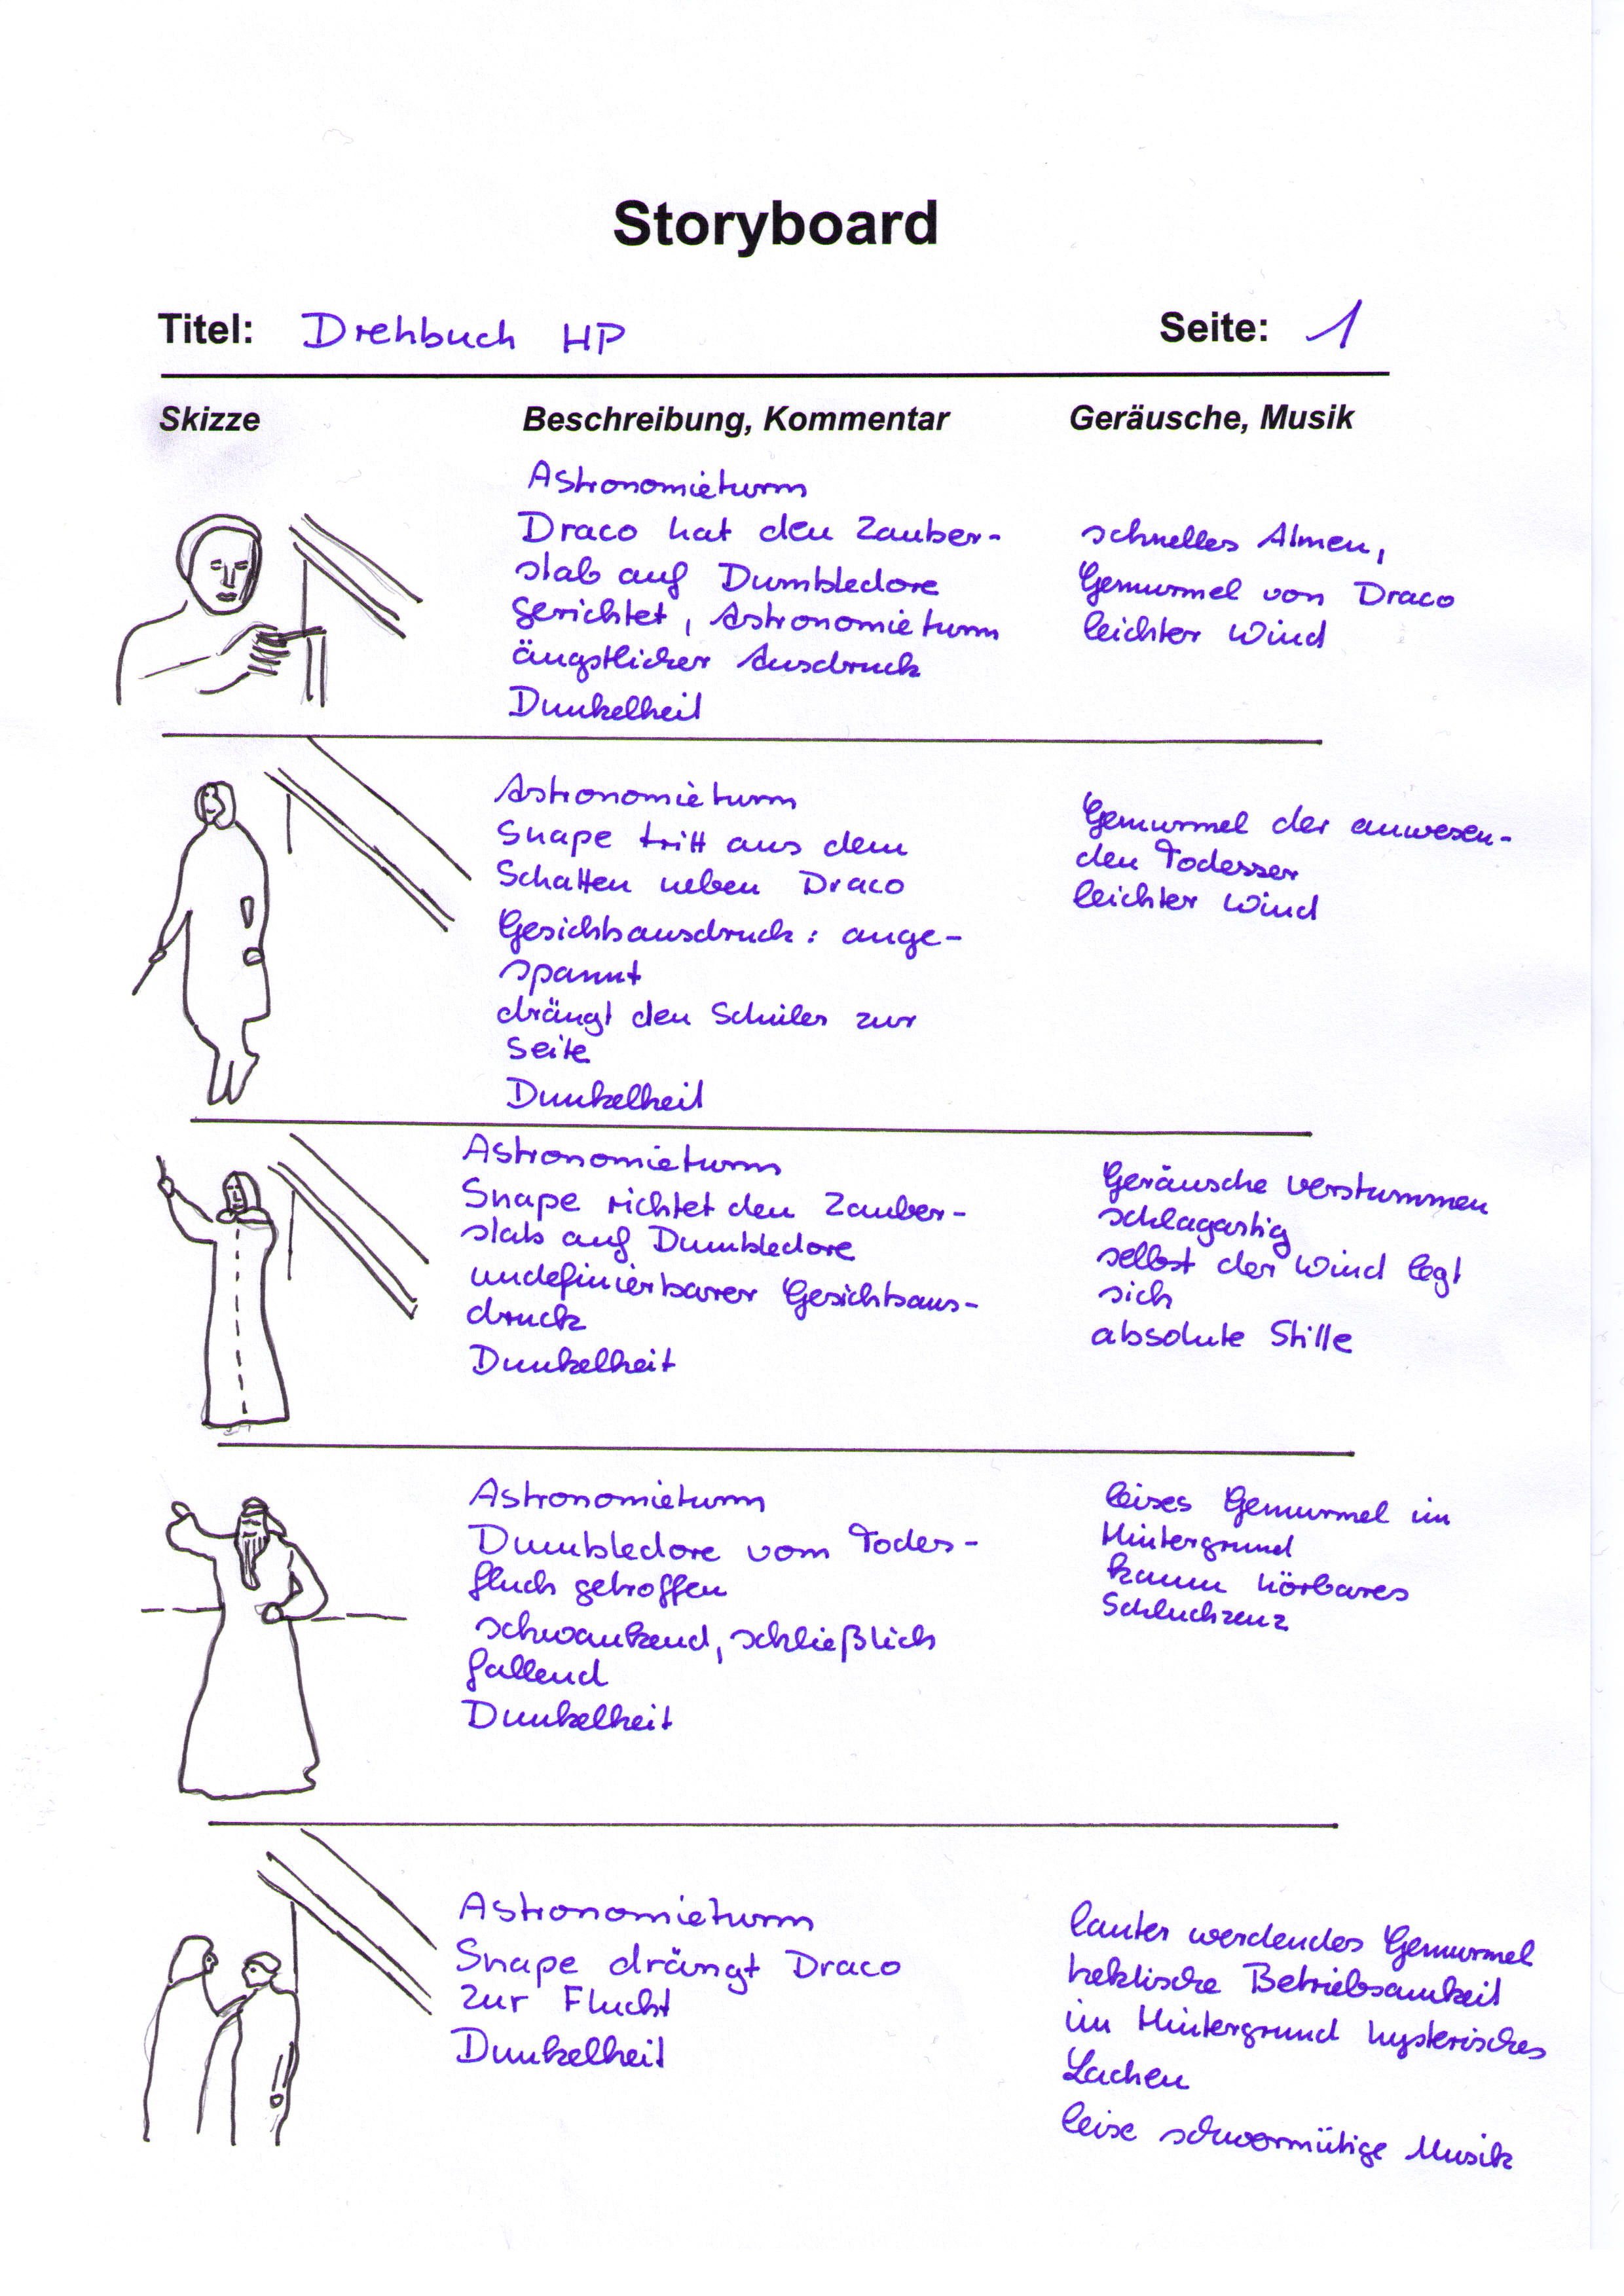 Storyboard
Titel: Drehbuch HP Seite: 1
Skizze Beschreibung, Kommentar Geräusche, Musik
Astronomieturm
Draco hat den Zauber-
stab auf Dumbledore
gerichtet, Astronomieturm
ängstlicher Ausdruck
Dunkelheit
schnelles Atmen,
Gemurmel von Draco
leichter Wind
Astronomieturm
Snape tritt aus dem
Schatten neben Draco
Gesichtsausdruck: ange-
spannt
drängt den Schüler zur
Seite
Dunkelheit
Gemurmel der anwesen-
den Todesser
leichter Wind
Astronomieturm
Snape richtet den Zauber-
stab auf Dumbledore
undefinierbarer Gesichtsaus-
druck
Dunkelheit
Geräusche verstummen
schlagartig
selbst der Wind legt
sich
absolute Stille
Astronomieturm
Dumbledore vom Todes-
fluch getroffen
schwankend, schließlich
fallend
Dunkelheit
leises Gemurmel im
Hintergrund
kaum hörbares
Astronomieturm
Snape drängt Draco
zur Flucht
Dunkelheit
lauter werdendes Gemurmel
hektische Betriebsamkeit
im Hintergrund hysterisches
Lachen
leise schwermütige Musik